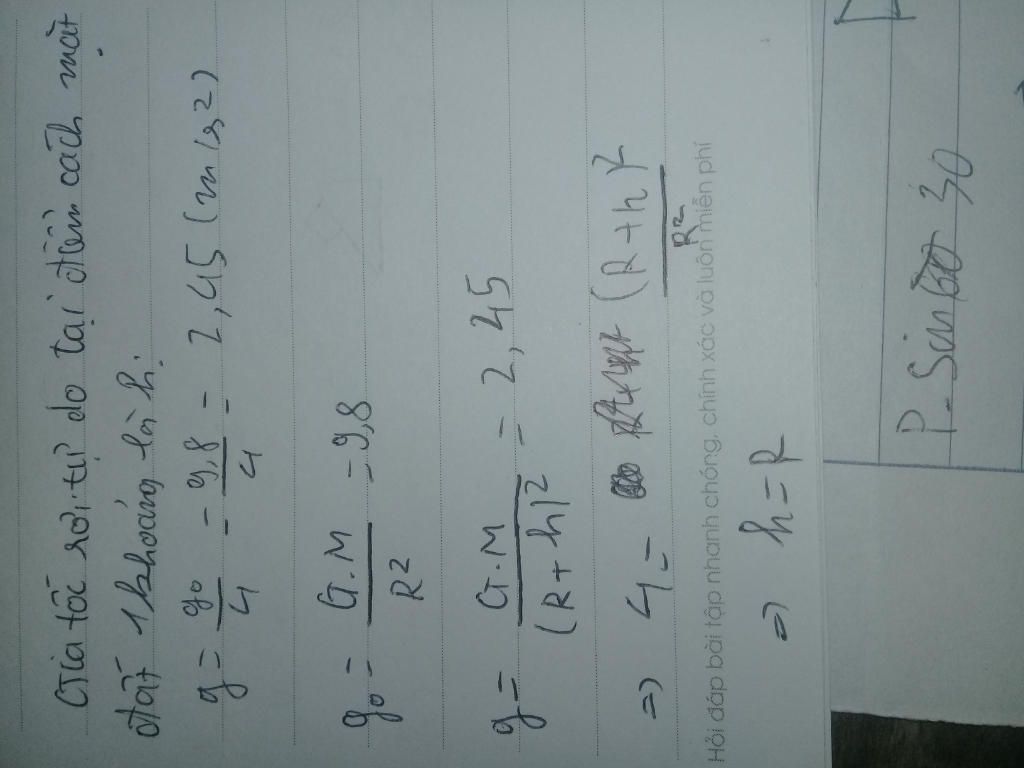 Gia tốc rơi tự do tại điểm cách mặt
đất 1 khoảng là h.
g = g₀/4 = 9,8/4 = 2,45 (m/s2)
g₀ = G.M/R² = 9,8
g = G.M/(R+h)² = 2,45
=> 4 = (R+h)²/R²
Hỏi đáp bài tập nhanh chóng, chính xác và luôn miễn phí
=> h = R
P. Sin 30